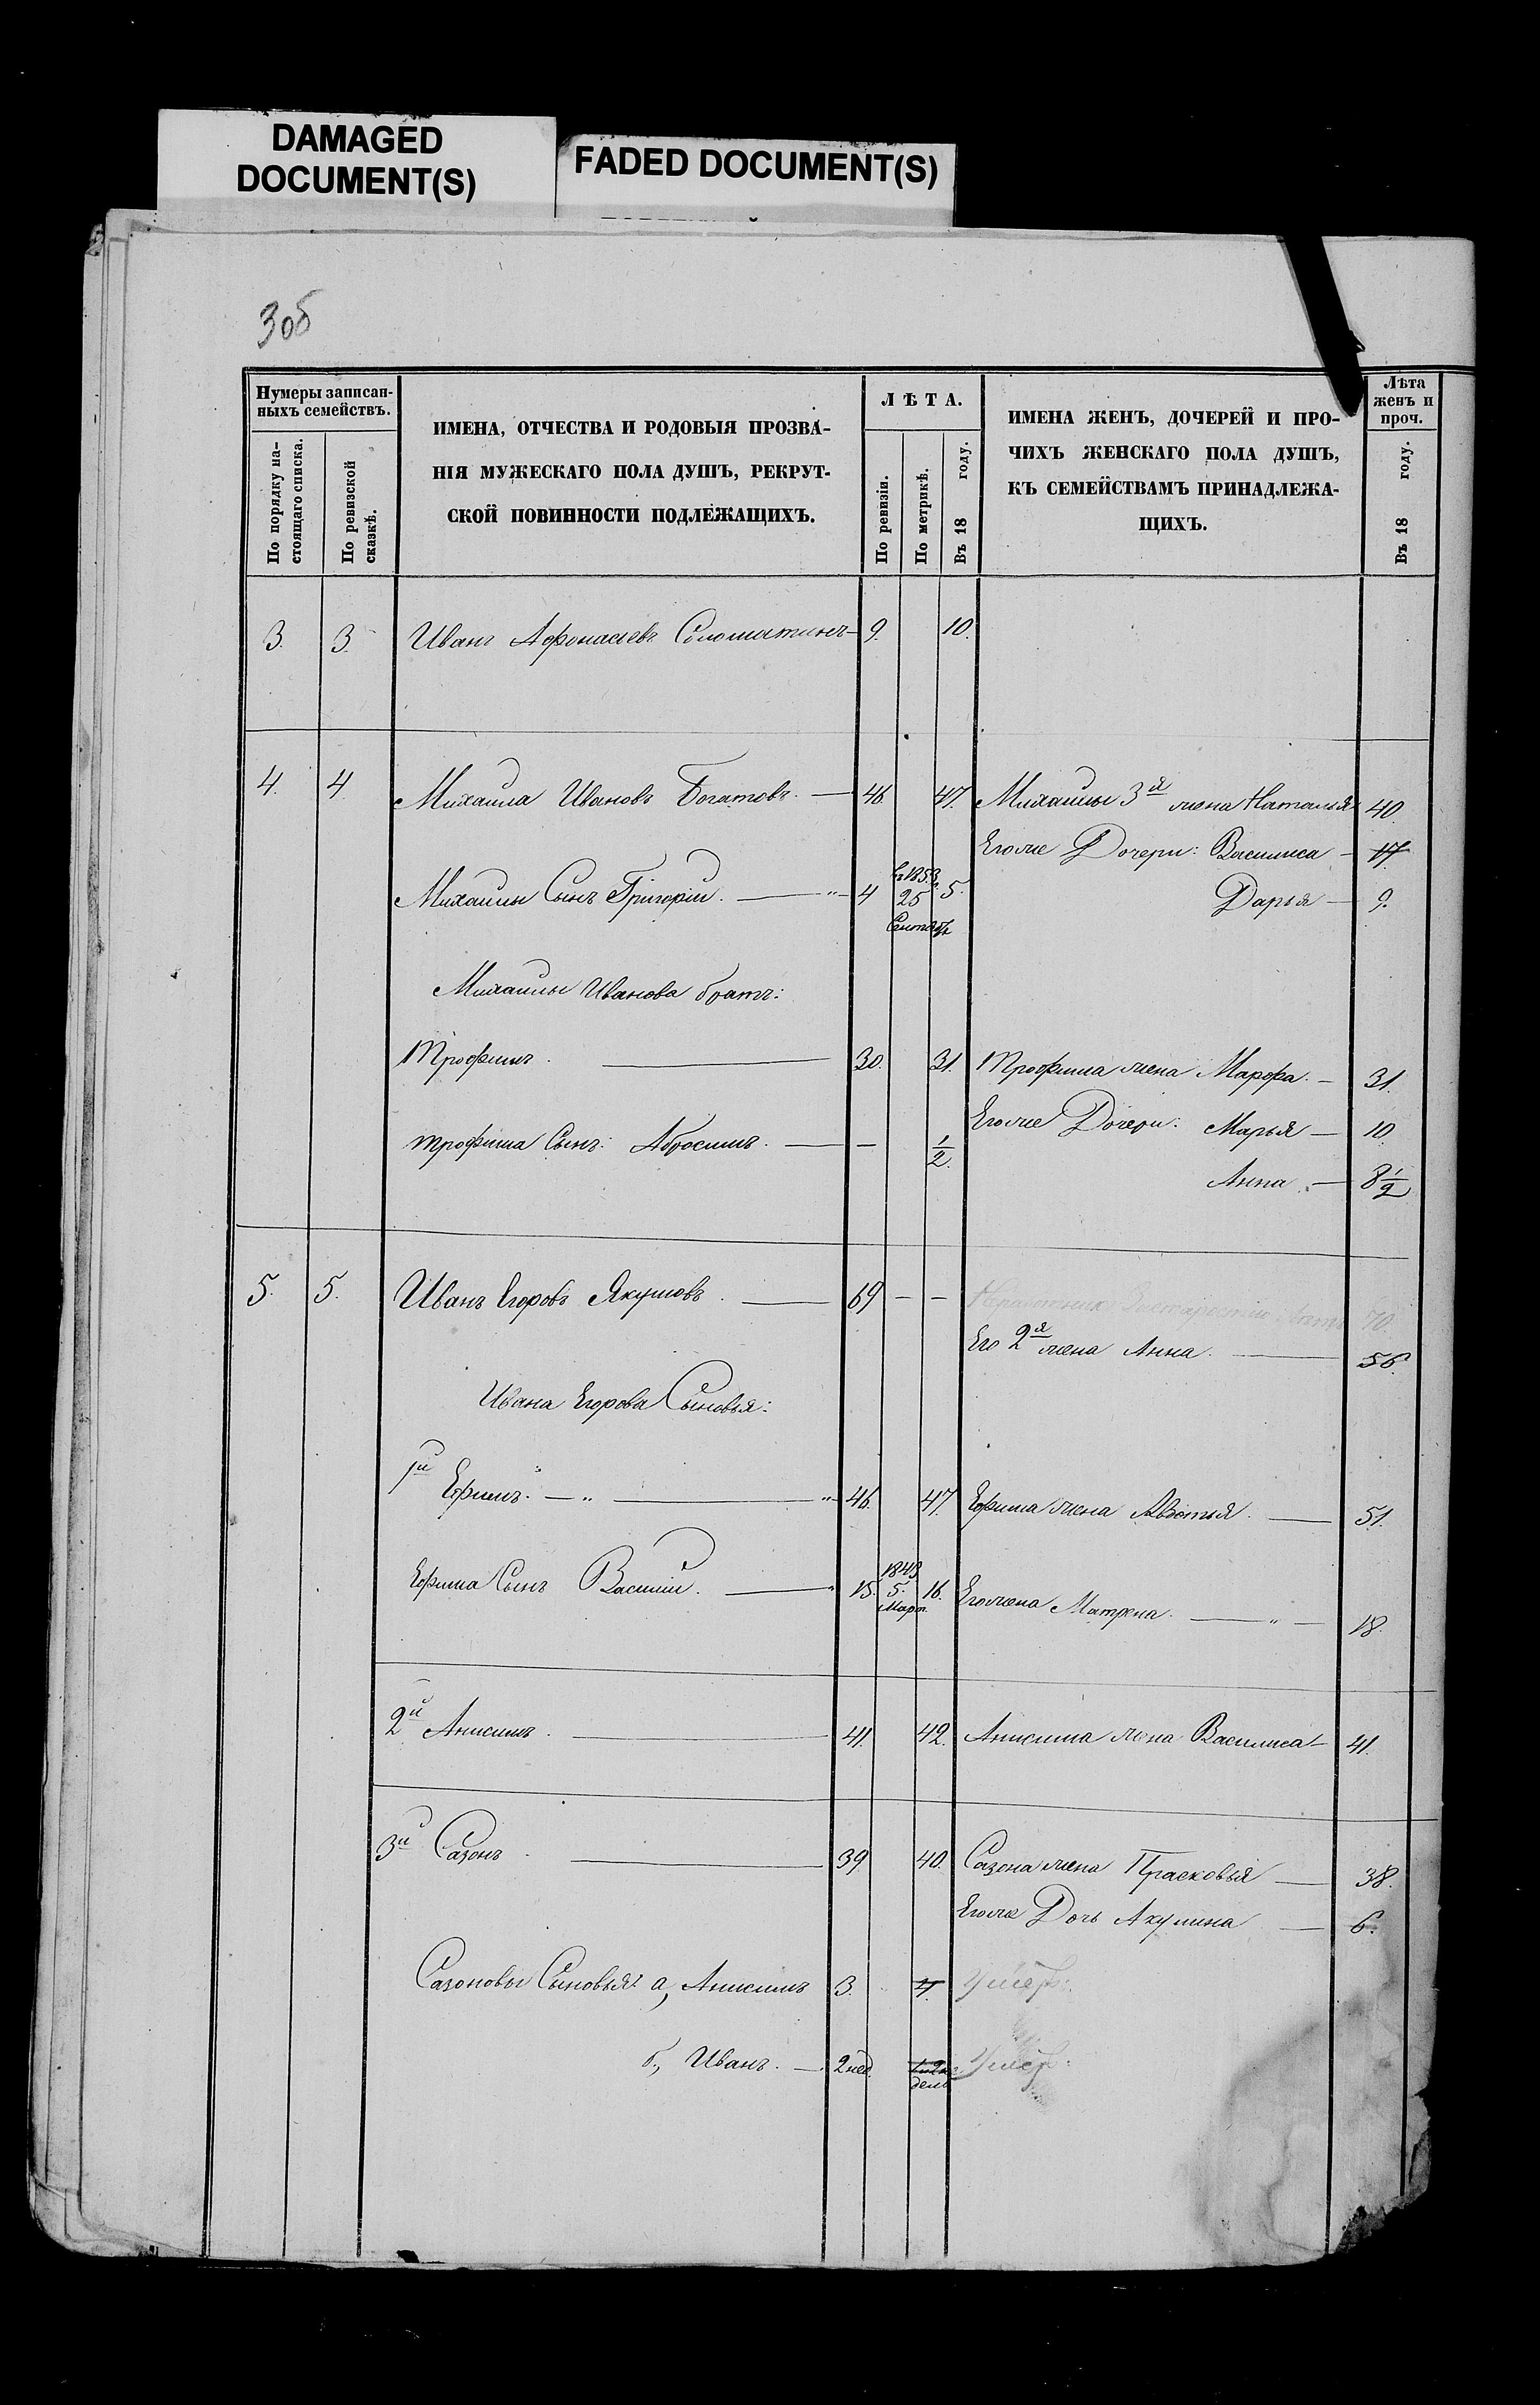 DAMAGED
DOCUMENT(S)
FADED DOCUMENT(S)
3об
Нумеры записан-
ныхъ семействъ.
По порядку на-
стоящаго списка.
По ревизской
сказкѣ.
ИМЕНА, ОТЧЕСТВА И РОДОВЫЯ ПРОЗВА-
НІЯ МУЖЕСКАГО ПОЛА ДУШЪ, РЕКРУТ-
СКОЙ ПОВИННОСТИ ПОДЛЕЖАЩИХЪ.
ЛѢТА.
По ревизіи.
По метрикѣ.
Въ 18 году.
ИМЕНА ЖЕНЪ, ДОЧЕРЕЙ И ПРО-
ЧИХЪ ЖЕНСКАГО ПОЛА ДУШЪ,
КЪ СЕМЕЙСТВАМЪ ПРИНАДЛЕЖА-
ЩИХЪ.
Лѣта
женъ и
проч.
Въ 18 году.
3. 3. Иванъ Афонасьевъ Соломатинъ 9. 10.
4. 4. Михаила Ивановъ Богатовъ. 46. 47. Михаилы 3я жена Наталья 40.
Егоже Дочери: Василиса 17
Михаилы Сынъ Григорій. 4 1853 25 5. Дарья 9.
Михаилы Иванова братъ:
Трофимъ. 30. 31. Трофима жена Марфа. 31.
Егоже Дочери: Марья 10.
Трофима Сынъ: Абросимъ. — 1/2.
Анна 8 1/2
5. 5. Иванъ Егоровъ Якушовъ. 69 — — 70.
Его 2я жена Анна. 56.
Ивана Егорова Сыновья:
1й Ефимъ. 46. 47. Ефима жена Авдотья. 51.
Ефима Сынъ Василій. 15. 1843 5. Март. 16. Его жена Матрена. 18.
2й Анисимъ. 41. 42. Анисима жена Василиса 41.
3й Сазонъ 39. 40. Сазона жена Прасковья 38.
Егоже Дочь Акулина 6.
Сазоновы Сыновья: а, Анисимъ 3. 4. Умеръ.
б, Иванъ. 2 нед. Умеръ.